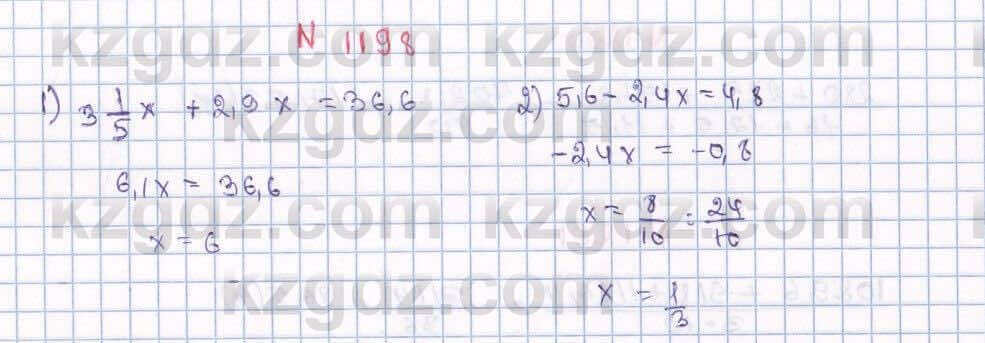 N 1198
1) 3 1/5 x + 2,9 x = 36,6
6,1x = 36,6
x = 6
2) 5,6 - 2,4x = 4,8
-2,4x = -0,8
x = 8/10 : 24/10
x = 1/3
kzgdz.com kzgdz.com
kzgdz.com
kzgdz.com kzgdz.com
kzgdz.com